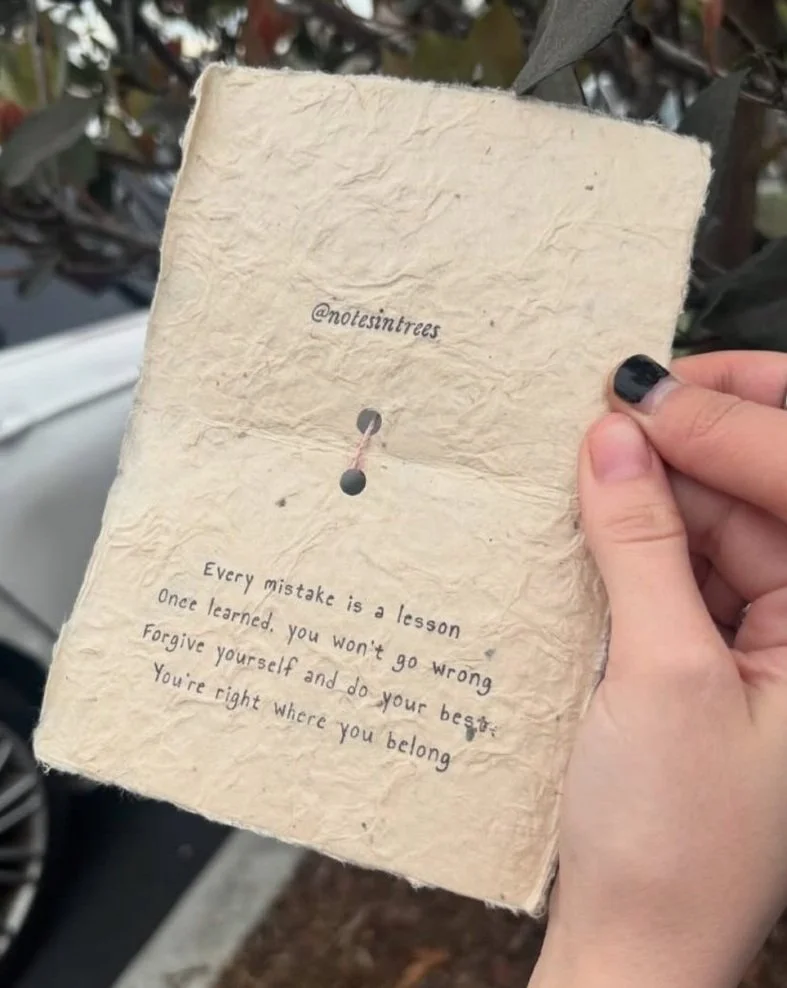 @notesintrees
Every mistake is a lesson
Once learned, you won't go wrong
Forgive yourself and do your best.
You're right where you belong